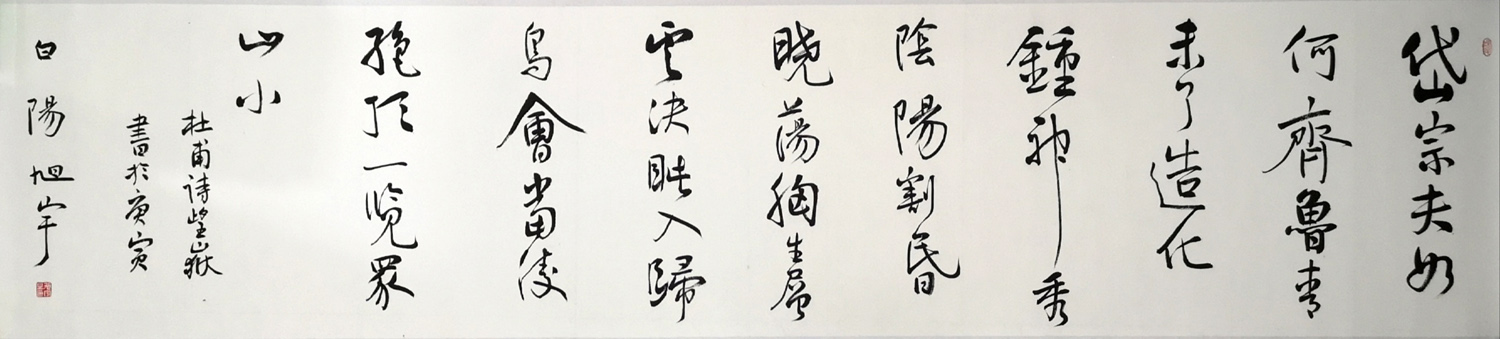 岱宗夫如
何齊魯青
未了造化
鍾神秀
陰陽割昏
曉蕩胸生層
雲決眥入歸
鳥會當凌
絕頂一覽眾
山小
杜甫詩望嶽
書於庚寅
白陽旭宇